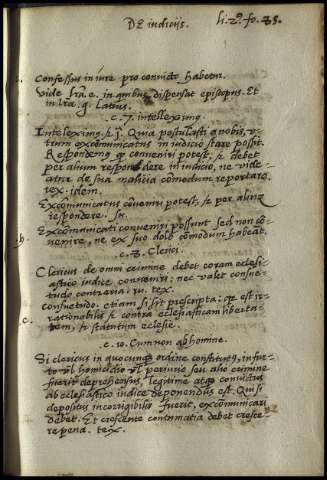 De iudicijs. li. 2. fo. 35.
Confessus in iure pro convicto habetur.
Vide Ira. e. in quibus dispensat episcopus. Et
in lra. q. latius.
c. 7. intelleximq
Intelleximq. &c. Quia postulasti a nobis, v-
trum excommunicatus in iudicio stare possit.
Respondemq qr conveniri potest, & debet
per alium respondere in iudicio, ne vide-
atur de sua malicia comodum reportare,
tex. idem.
Excomunicatus conveniri potest, & per alium
respondere. Su.
Excomunicati conveniri possunt sed non co-
venire, ne ex suo dolo comodum habeat.
h.
c. 8. Clerici.
Clericus de omni crimine debet coram eclesi-
astico iudice conveniri: nec valet consue-
tudo contraria: ru. tex.
consuetudo. etiam si sit prescripta: qr est ir-
rationabilis & contra eclesiasticam liberta-
c.
tem, & statutum eclesie.
c. 10. Cum non ab homine.
Si clericus in quocunq ordine constitutq, in fur-
to vl homicidio vl periurio seu alio crimine
fuerit deprehensus, legitime atq convictus
ab eclesiastico iudice deponendus est. Qui si
depositus incorrigibilis fuerit, excomunicari
debet. Et crescente contumatia debet cresce-
re pena. tex.